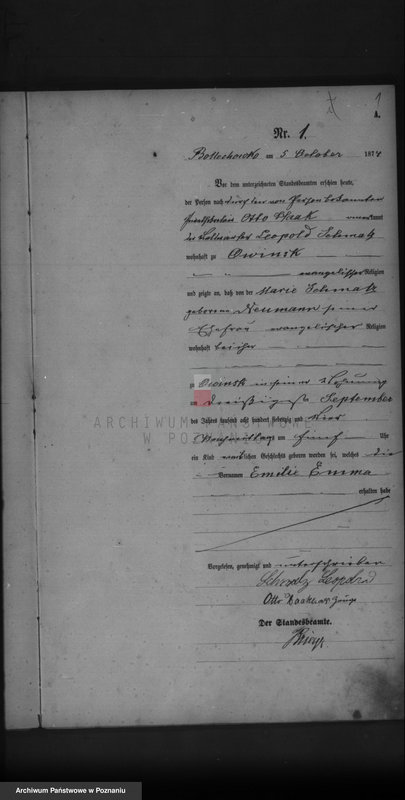 1
A.
Nr. 1.
Bolechowko am 5 October 1874
Vor dem unterzeichneten Standesbeamten erschien heute,
der Person nach durch den von Person bekannten
Otto Haak anerkannt
der Leopold Schmalz
wohnhaft zu Owinsk
evangelischer Religion
und zeigte an, daß von der Marie Schmalz
geborene Neumann seiner
Ehefrau evangelischer Religion
wohnhaft bei ihm
zu Owinsk in seiner Wohnung
am dreißigsten September
des Jahres tausend acht hundert siebenzig und vier
Nachmittags um fünf Uhr
ein Kind weiblichen Geschlechts geboren worden sei, welches die
Vornamen Emilie Emma
erhalten habe
Vorgelesen, genehmigt und unterschrieben
Schmalz Leopold
Otto Haak als Zeuge
Der Standesbeamte.
ARCHIWUM PAŃSTWOWE
W POZNANIU
Archiwum Państwowe w Poznaniu